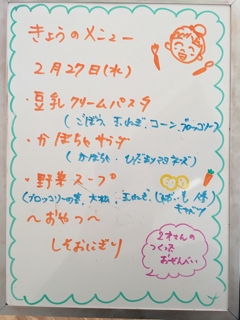 きょうのメニュー
2月27日(水)
・豆乳クリームパスタ
(ごぼう、玉ねぎ、コーン、ブロッコリー)
・かぼちゃサラダ
(かぼちゃ・ひじき・マヨネーズ)
・野菜スープ
(ブロッコリーの茎、大根、玉ねぎ、じゃがいも、人参
キャベツ)
〜おやつ〜
しそおにぎり
2才さんの
つくった
おせんべい